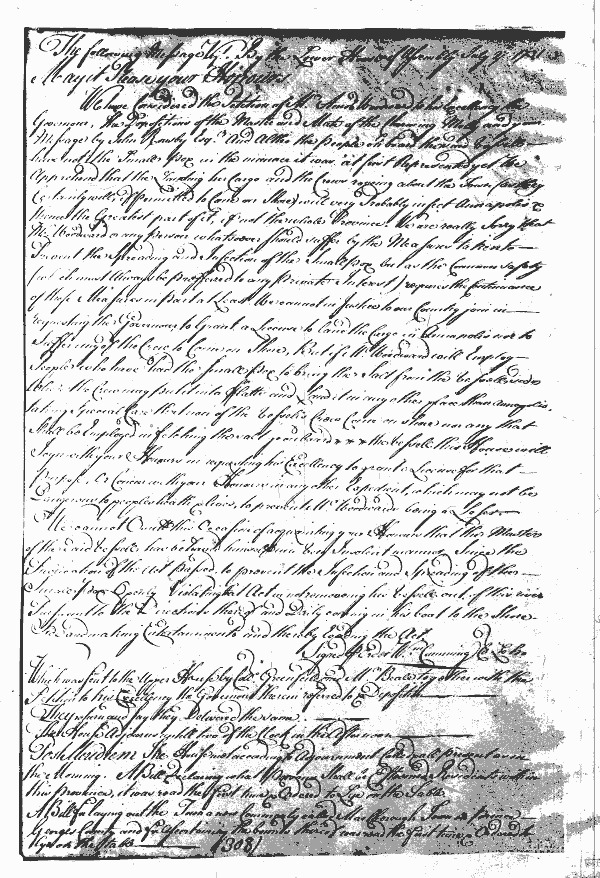 The following Message Vizt. By the Lower House of Assembly July 9
May it Please your Honours
We have Considered the Petition of Mrs. Woodward to his Excellency the
Governour, the Depositions of the Master and Mate of the and your
Message by John Rousby Esqr. And Altho the People on board the said Vessell
have not the Small Pox in the manner it was at first Represented yet we
Apprehend that the Landing his Cargo and the Crew roaming about the Town
Certainly will, if permitted to Come on Shore) will very Probably infect Annapolis &
the Greatest part of it, if not the whole Province. We are really Sorry that
Mr. Woodward or any Person whatsoever should suffer by the Measures taken to
Prevent the Spreading and Infection of the Small Pox but as the Common Safety
(which must Always be preferred to any Private Interest) requires the Continuance
of those Measures in Part at Least We cannot in Justice to our Country join in
requesting the Governour to Grant a License to land the Cargo in Annapolis nor to
Suffer any of the Crew to Come on Shore, But if Mr. Woodward will Employ
People who have had the small Pox to bring the Salt from the Vessell
the Crew may Put it into Flatts and Land it in any other place than Annapolis,
taking Special Care that none of the Vessells Crew Come on shore nor any that
Shall be Employed in fetching the Salt the Vessell this House will
Join with your Honours in requesting his Excellency to grant a License for that
Purpose, Or Concur with your Honours in any other Expedient, which may not be
Dangerous to peoples health or lives, to prevent Mr. Woodward being a Loser
We cannot Omit this Occasion of acquainting your Honours that the Master
of the said Vessell has behaved himself in a very Insolent manner Since the
Publication of the Act Passed to prevent the Infection and Spreading of the
Small Pox Openly Violating that Act in not removing his Vessell out of this river
Pursuant to the Directions thereof and daily coming in his boat to the Shore
and making Entertainments and thereby Evading the Act.
Signed Order Wm. Cumming Cl. Lo. Ho.
Which was sent to the Upper House by Coll. Greenfield and Mr. Beale together with the
Petition to his Excellency the Governour therein referred to & Depositions
They return and say they Delivered the same.
The House Adjourns untill two of the Clock in the Afternoon
Post Meridiem The House met according to Adjournment Called over & all present as in
the Morning. A Bill Declaring what Persons Shall be Esteemed Residents within
this Province, it was read the first time & Ordered to Lye on the Table
A Bill for laying out the Town anew Commonly called Marlborough Town in Prince
Georges County and for ascertaining the bounds thereof was read the first time & Ordered to
lye on the Table
(308)